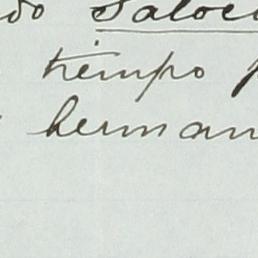 do Saloc
tiempo p
herman